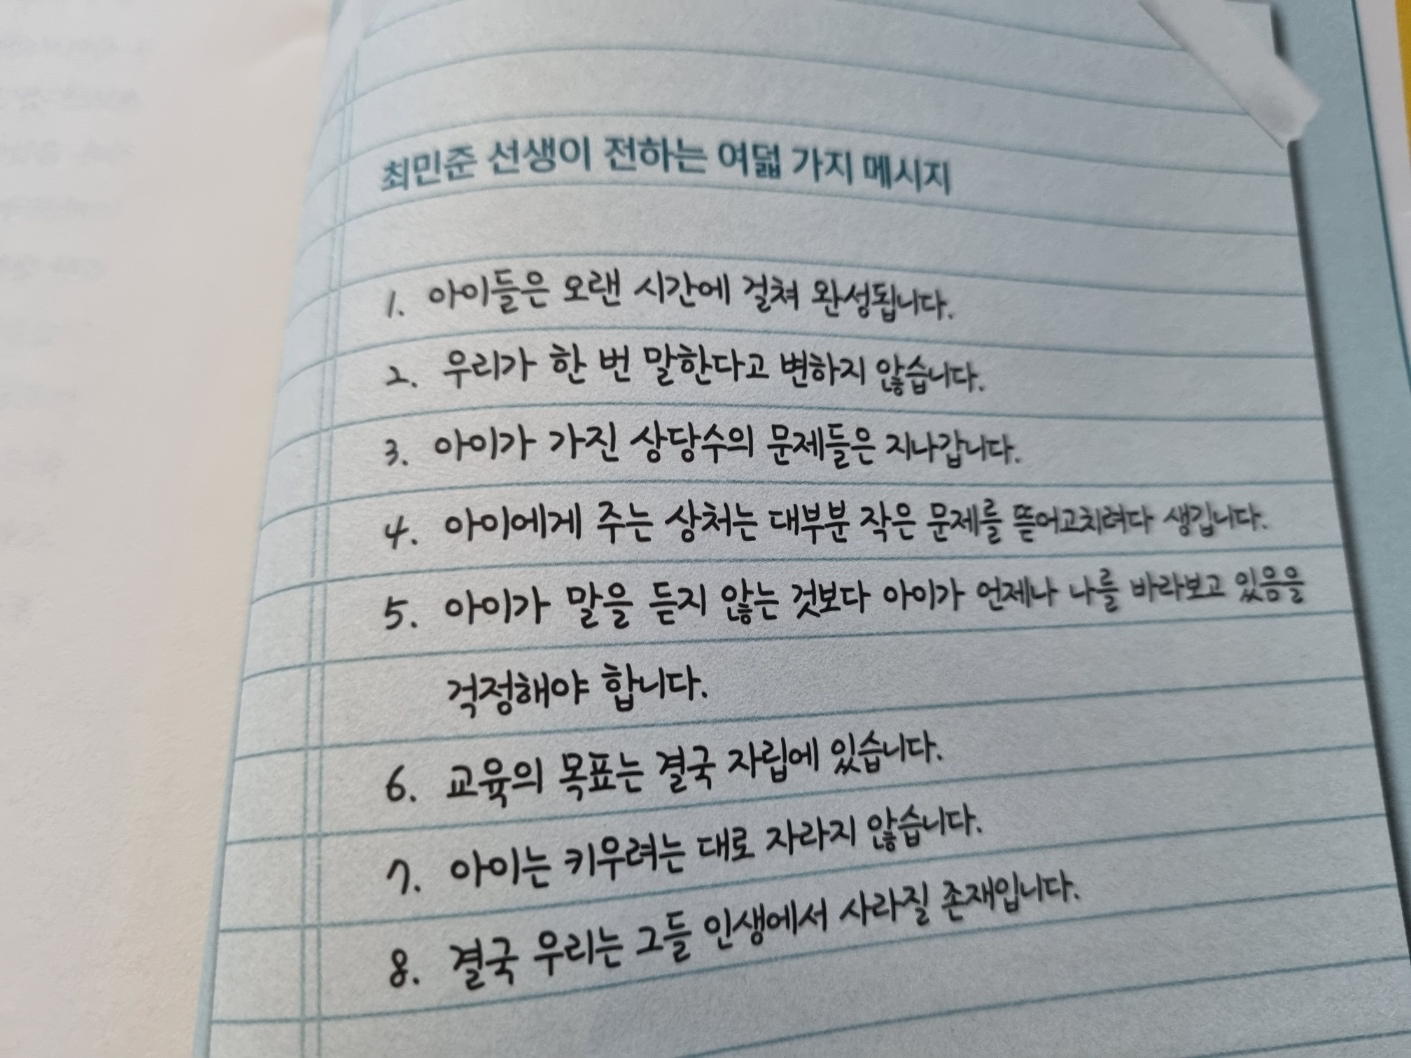 최민준 선생이 전하는 여덟 가지 메시지
1. 아이들은 오랜 시간에 걸쳐 완성됩니다.
2. 우리가 한 번 말한다고 변하지 않습니다.
3. 아이가 가진 상당수의 문제들은 지나갑니다.
4. 아이에게 주는 상처는 대부분 작은 문제를 뜯어고치려다 생깁니다.
5. 아이가 말을 듣지 않는 것보다 아이가 언제나 나를 바라보고 있음을
걱정해야 합니다.
6. 교육의 목표는 결국 자립에 있습니다.
7. 아이는 키우려는 대로 자라지 않습니다.
8. 결국 우리는 그들 인생에서 사라질 존재입니다.